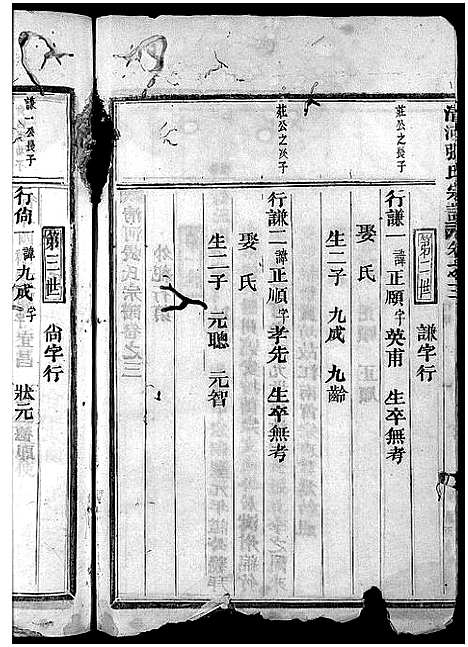 清河張氏宗譜 卷之三
第二世 謙字行
莊公之長子
行謙一 諱正願 字英甫 生卒無考
娶氏
生二子 九成 九齡
莊公之次子
行謙二 諱正順 字孝先 生卒無考
娶氏
生二子 元聰 元智
第三世 尙字行
謙一公長子
行尙一 諱九成 字 狀元